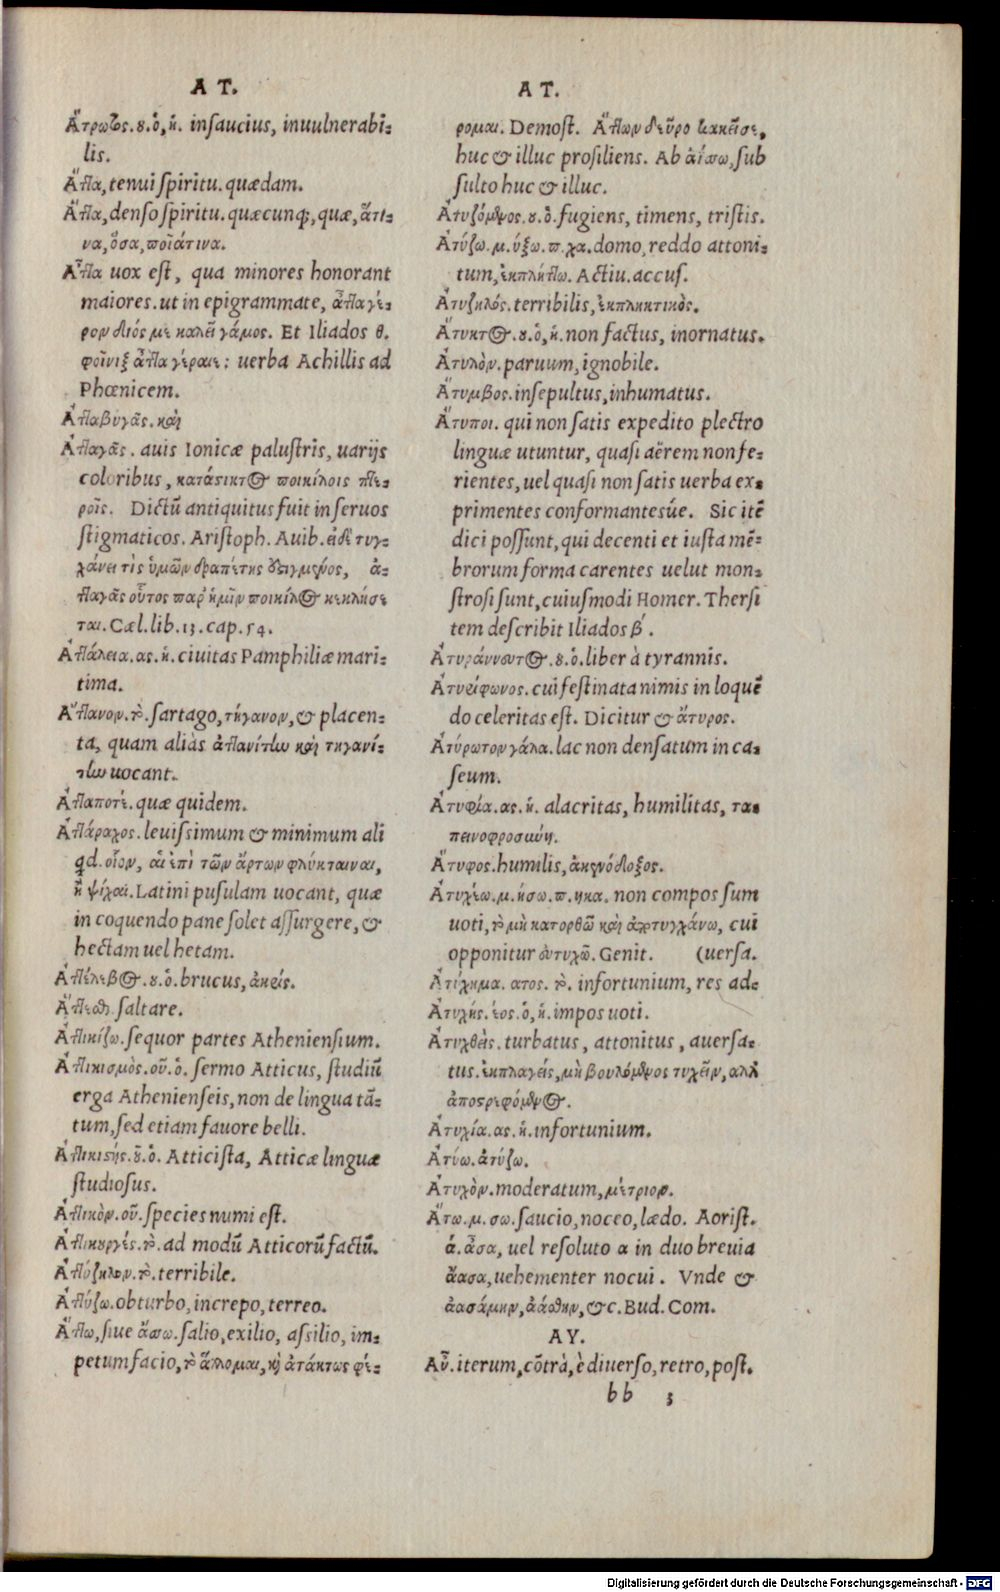 A T.
Ἄτρωτος. ου. ὁ, ἡ. insaucius, inuulnerabi-
lis.
Ἄττα, tenui spiritu. quædam.
Ἅττα, denso spiritu. quæcunq;, quæ, ἅτι-
να, ὅσα, ποῖάτινα.
Ἄττα uox est, qua minores honorant
maiores. ut in epigrammate, ἄττα γέ-
ρον διός με καλεῖ γάμος. Et Iliados θ.
φοῖνιξ ἄττα γέραιε: uerba Achillis ad
Phœnicem.
Ἀτταβυγᾶς. καὶ
Ἀτταγᾶς. auis Ionicæ palustris, uarijs
coloribus, κατάστικτος ποικίλοις πτε-
ροῖς. Dictũ antiquitus fuit in seruos
stigmaticos. Aristoph. Auib. εἰ δὲ τυγ-
χάνει τὶς ὑμῶν δραπέτης ἐστιγμένος, ἀ-
τταγᾶς οὗτος παρ' ἡμῖν ποικίλος κεκλήσε
ται. Cæl. lib. 13. cap. 54.
Ἀττάλεια. ας. ἡ. ciuitas Pamphiliæ mari-
tima.
Ἄττανον. τὸ. sartago, τήγανον, & placen-
ta, quam aliàs ἀττανίτην καὶ τηγανί-
την uocant.
Ἅτταποτέ. quæ quidem.
Ἀττάραχος. leuissimum & minimum ali
qd. οἷον, αἱ ἐπὶ τῶν ἄρτων φλύκταιναι,
ἢ ψίχαι. Latini pusulam uocant, quæ
in coquendo pane solet assurgere, &
hectam uel hetam.
Ἀττέλεβος. ου. ὁ. brucus, ἀκρίς.
Ἄττεσθαι. saltare.
Ἀττικίζω. sequor partes Atheniensium.
Ἀττικισμὸς. οῦ. ὁ. sermo Atticus, studiũ
erga Athenienseis, non de lingua tã-
tum, sed etiam fauore belli.
Ἀττικιστής. οῦ. ὁ. Atticista, Atticæ linguæ
studiosus.
Ἀττικὸν. οῦ. species numi est.
Ἀττικουργές. τὸ. ad modũ Atticorũ factũ.
Ἀττύζηλον. τὸ. terribile.
Ἀττύζω. obturbo, increpo, terreo.
Ἄττω, siue ἄσσω. salio, exilio, assilio, im-
petum facio, τὸ ἅλλομαι, καὶ ἀτάκτως φέ-
A T.
ρομαι. Demost. Ἄττων δεῦρο κακεῖσε,
huc & illuc prosiliens. Ab ἀΐσσω, sub
sulto huc & illuc.
Ἀτυζόμενος. ου. ὁ. fugiens, timens, tristis.
Ἀτύζω. μ. ύξω. π. χα. domo, reddo attoni-
tum, ἐκπλήττω. Actiu. accus.
Ἀτυζηλός. terribilis, ἐκπληκτικὸς.
Ἄτυκτος. ου. ὁ, ἡ. non factus, inornatus.
Ἀτυλὸν. paruum, ignobile.
Ἄτυμβος. insepultus, inhumatus.
Ἄτυποι. qui non satis expedito plectro
linguæ utuntur, quasi aërem non fe-
rientes, uel quasi non satis uerba ex-
primentes conformantesúe. Sic itẽ
dici possunt, qui decenti et iusta mẽ-
brorum forma carentes uelut mon-
strosi sunt, cuiusmodi Homer. Thersi
tem describit Iliados β'.
Ἀτυράννευτος. ου. ὁ. liber à tyrannis.
Ἀτυείφωνος. cui festinata nimis in loquẽ
do celeritas est. Dicitur & ἄτυρος.
Ἀτύρωτον γάλα. lac non densatum in ca-
seum.
Ἀτυφία. ας. ἡ. alacritas, humilitas, τα-
πεινοφροσύνη.
Ἄτυφος. humilis, ἀκενόδοξος.
Ἀτυχέω. μ. ήσω. π. ηκα. non compos sum
uoti, τὸ μὴ κατορθῶ καὶ ἀποτυγχάνω, cui
opponitur εὐτυχῶ. Genit. (uersa.
Ἀτύχημα. ατος. τὸ. infortunium, res ad-
Ἀτυχής. έος. ὁ, ἡ. impos uoti.
Ἀτυχθεὶς. turbatus, attonitus, auersa-
tus. ἐκπλαγείς, μὴ βουλόμενος τυχεῖν, ἀλλ'
ἀποστρεφόμενος.
Ἀτυχία. ας. ἡ. infortunium.
Ἀτύω. ἀτύζω.
Ἀτυχὸν. moderatum, μέτριον.
Ἄτω. μ. σω. saucio, noceo, lædo. Aorist.
ά. ἆσα, uel resoluto α in duo breuia
ἄασα, uehementer nocui. Vnde &
ἀασάμην, ἀάσθην, &c. Bud. Com.
AY.
Αὖ. iterum, cõtrà, è diuerso, retro, post.
bb 3
Digitalisierung gefördert durch die Deutsche Forschungsgemeinschaft - DFG